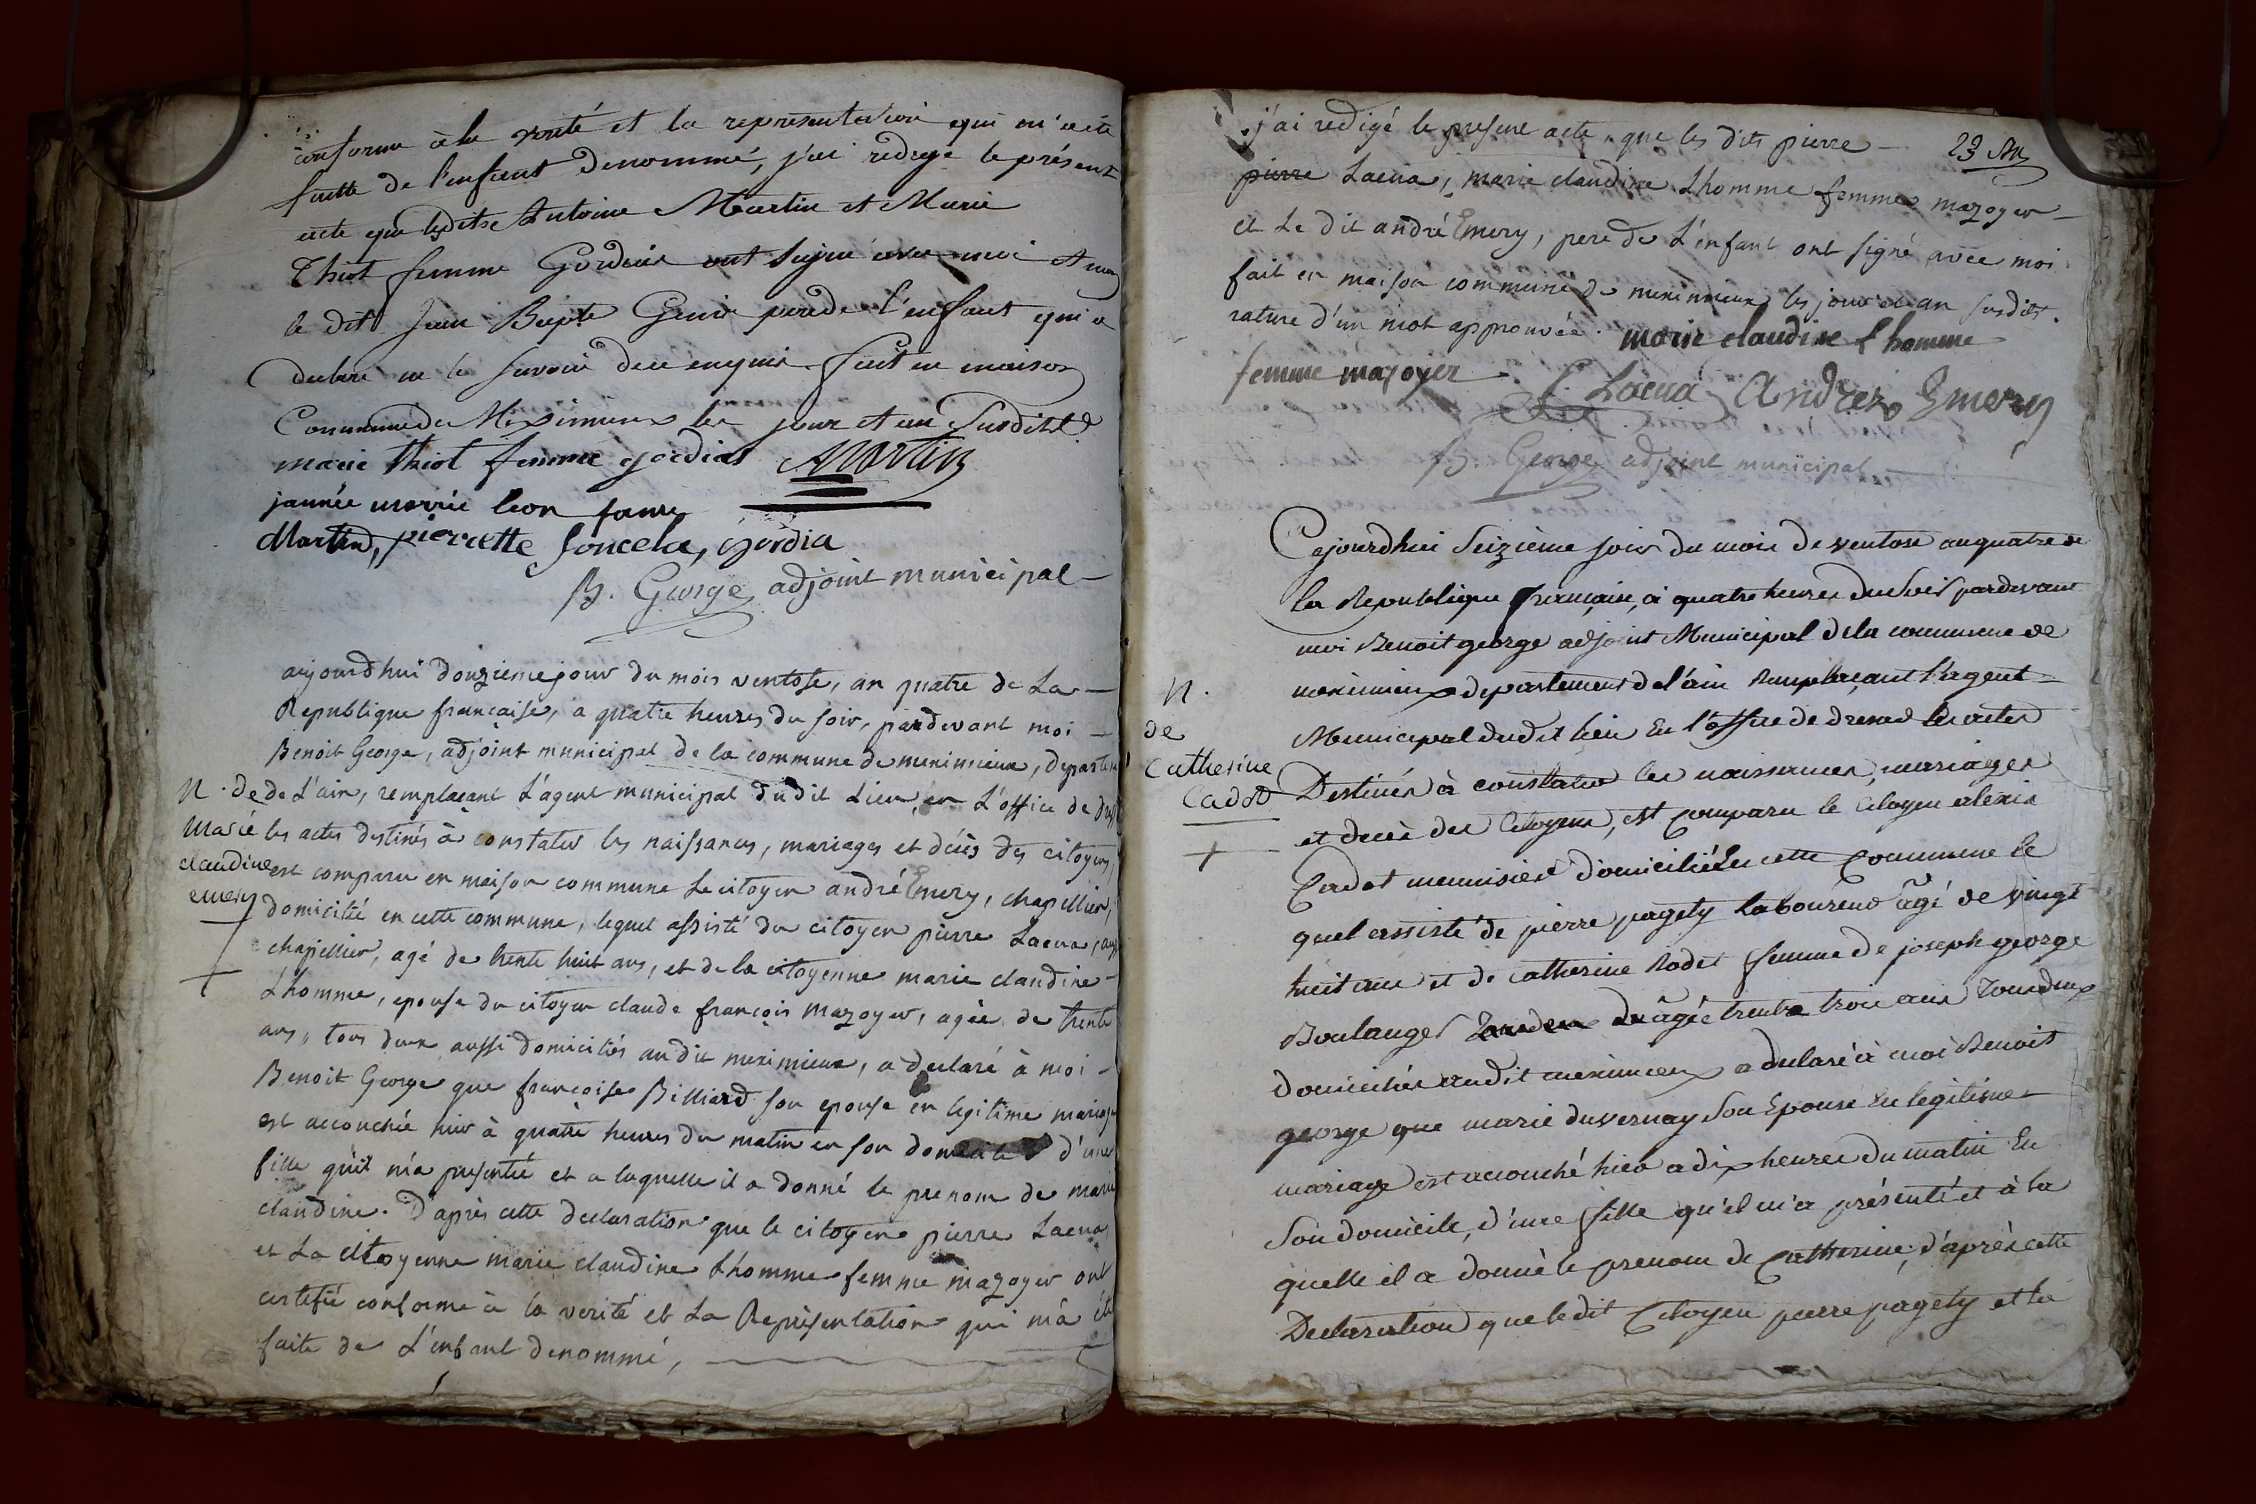 conforme à la verité et la representation qui m'a été
faitte de l'enfient denommé, j'ai redigé le présent
acte que lesdits Antoine Martin et Marie
Thiot femme Gordiat ont signé avec moi et non
le dit Jean Bapte Genis pere de l'enfant qui a
declaré ne le savoir de ce enquis. fait en maison
Commune de Meximieux les jour et an Susdits.
marie thiot femme gordiat AMartin
jannée marie leon fame
Martin, pierrette foncela, gordia
B. George adjoint municipal
aujourd'hui douzieme jour du mois ventose, an quatre de La
Republique française, a quatre heures du soir, pardevant moi
Benoit George, adjoint municipal de la commune de meximieux, departem
N. de de L'ain, remplacant L'agent municipal dudit Lieu, en L'office de
Marie les actes destinés à constater les naissances, mariages et décès des citoyens,
claudine est comparu en maison commune Le citoyen andré Emery, chapellier,
emery domicilié en cette commune, lequel assisté du citoyen pierre Laena,
chapellier, agé de trente huit ans, et de la citoyenne marie claudine
L'homme, epouse du citoyen claude françois mazoyer, agée de trente
ans, tous deux aussi domiciliés audit meximieux, a declaré à moi
Benoit George que françoise Billiard son epouse en legitime mariage
est accouchée hier à quatre heures du matin en son domicile d'une
fille qu'il m'a presentée et a laquelle il a donné le prenom de marie
claudine. D'après cette declaration que le citoyen pierre Laena
et La citoyenne marie claudine L'homme femme mazoyer ont
certifié conforme à la verité et La Representation qui m'a été
faite de L'enfant denommé,
j'ai redigé le present acte que les dits pierre
23 
pierre Laena, marie claudine L'homme femme mazoyer
et Le dit andré Emery, pere de L'enfant ont signé avec moi.
fait en maison commune de meximieux les jour et an susdits.
rature d'un mot approuvée. marie claudine l'homme
femme mazoyer Laena Andrez Emery
B. George adjoint municipal
Cejourdhui Seizieme jour du mois de ventose an quatre de
la Republique française, à quatre heures du soir pardevant
moi Benoit george adjoint Municipal de la commune de
N. meximieux departement de l'ain Remplaçant l'agent
de Municipal dudit lieu En l'office de dresser les actes
Catherine Destinés à constater les naissances, mariages
Cadot et decès des Citoyens, est Comparu le Citoyen alexis
Cadot menuisier domicilié En cette Commune le
quel assisté de pierre pagety laboureur âgé de vingt
huit ans et de Catherine Rodet femme de joseph george
Boulanger âgée trente trois ans Tous deux
domiciliés audit meximieux a declaré à moi Benoit
george que marie duvernay Son Epouse En legitime
mariage est accouché hier a dix heures du matin En
Son domicile, d'une fille qu'il m'a présenté et à la
quelle il a donné le prenom de Catherine, d'après cette
Declaration que ledit Citoyen pierre pagety et la